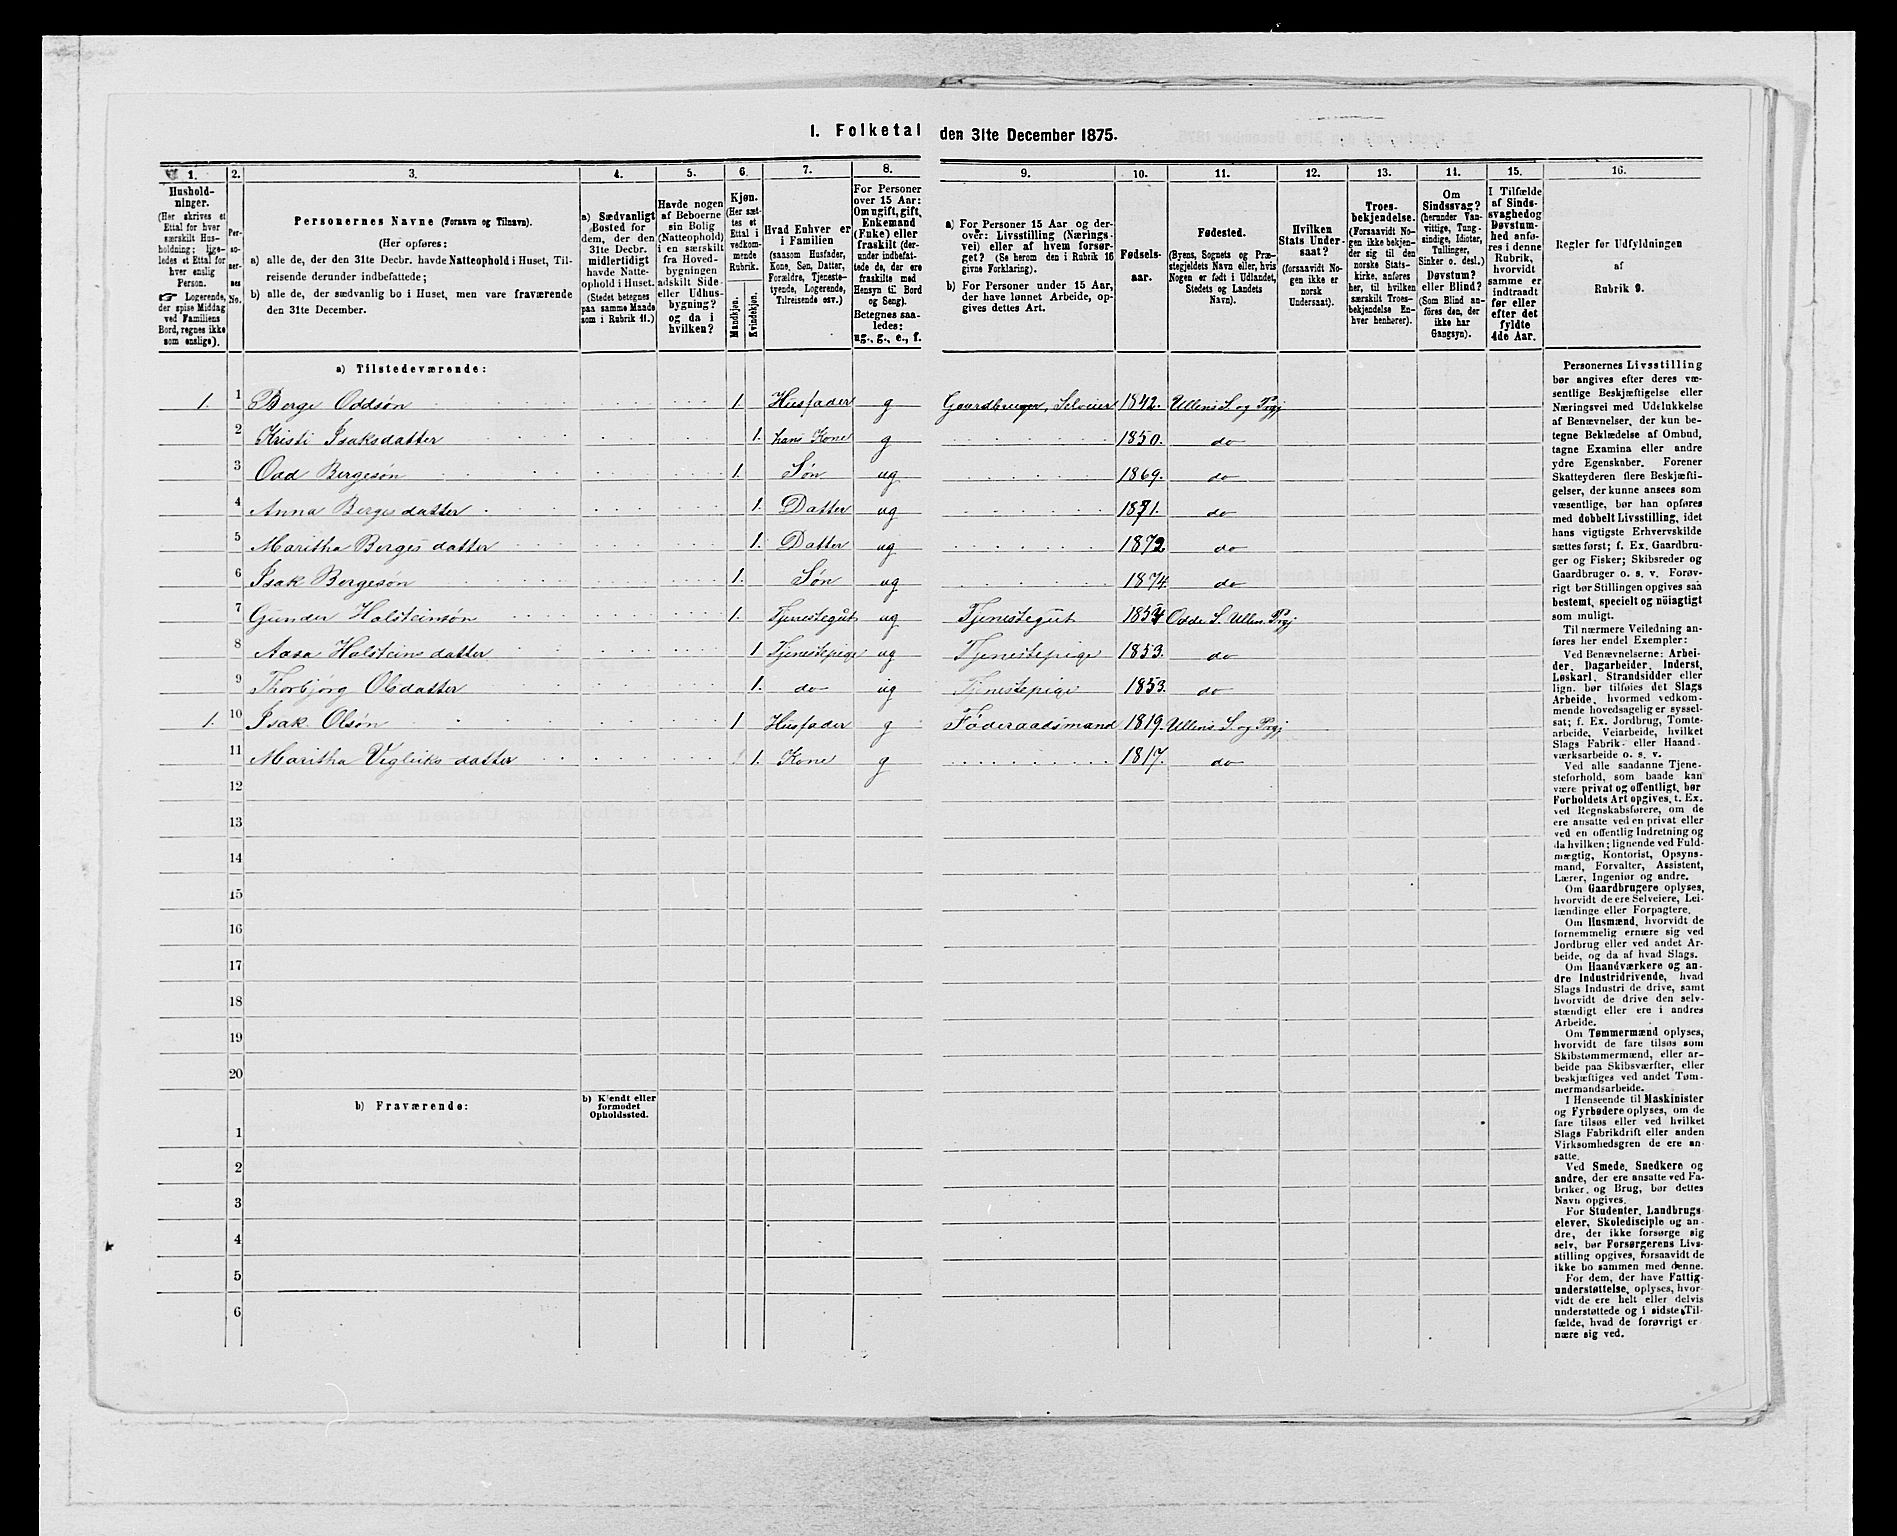 I. Folketal den 31te December 1875.
1.
Hushold-
ninger.
(Her skrives et
Ettal for hver
særskilt Hus-
holdning; lige-
ledes et Ettal for
hver enslig
Person.
☞ Logerende,
der spise Middag
ved Familiens
Bord, regnes ikke
som enslige).
2.
Per-
so-
ner-
nes
No.
3.
Personernes Navne (Fornavn og Tilnavn).
(Her opføres:
a) alle de, der den 31te Decbr. havde Natteophold i Huset, Til-
reisende derunder indbefattede;
b) alle de, der sædvanlig bo i Huset, men vare fraværende
den 31te December.
4.
a) Sædvanligt
Bosted for
dem, der den
31te Decbr.
midlertidigt
havde Natte-
ophold i Huset.
(Stedet betegnes
paa samme Maade
som i Rubrik 11.)
5.
Havde nogen
af Beboerne
sin Bolig
(Natteophold)
i en særskilt
fra Hoved-
bygningen
adskilt Side-
eller Udhus-
bygning?
og da i
hvilken?
6.
Kjøn.
(Her sæt-
tes et
Ettal i
vedkom-
mende
Rubrik.
Mandkjøn.
Kvindekjøn.
7.
Hvad Enhver er
i Familien
(saasom Husfader,
Kone, Søn, Datter,
Forældre, Tjeneste-
tyende, Logerende,
Tilreisende osv.)
8.
For Personer
over 15 Aar:
Om ugift, gift,
Enkemand
(Enke) eller
fraskilt (der-
under indbefat-
tede de, der ere
fraskilte med
Hensyn til Bord
og Seng).
Betegnes saa-
ledes:
ug., g., e., f.
9.
a) For Personer 15 Aar og der-
over: Livsstilling (Nærings-
vei) eller af hvem forsør-
get? (Se herom den i Rubrik 16
givne Forklaring).
b) For Personer under 15 Aar,
der have lønnet Arbeide, op-
gives dettes Art.
10.
Fødsels-
aar.
11.
Fødested.
(Byens, Sognets og Præ-
stegjeldets Navn eller, hvis
Nogen er født i Udlandet,
Stedets og Landets
Navn).
12.
Hvilken
Stats Under-
saat?
(forsaavidt No-
gen ikke er
norsk
Undersaat).
13.
Troes-
bekjendelse.
(Forsaavidt No-
gen ikke bekjen-
der sig til den
norske Stats-
kirke, anføres
her, til hvilken
særskilt Troes-
bekjendelse En-
hver henhører).
14.
Om
Sindssvag?
(herunder Van-
vittige, Tung-
sindige, Idioter,
Tullinger,
Sinker o. desl.)
Døvstum?
eller Blind?
(Som Blind an-
føres den, der
ikke har
Gangsyn).
15.
I Tilfælde
af Sinds-
svaghed og
Døvstum-
hed anfø-
res i denne
Rubrik,
hvorvidt
samme er
indtraadt
før eller
efter det
fyldte
4de Aar.
16.
Regler for Udfyldningen
af
Rubrik 9.
a) Tilstedeværende:
1. 1 Berge Oddsön 1. Husfader g Gaardbruger, Selveier 1842. Ullens S. og Prgj
2 Kristi Isaksdatter 1. hans Kone g 1850. do
3 Odd Bergesön 1. Søn ug 1869. do
4 Anna Bergesdatter 1. Datter ug 1871. do
5 Maritha Bergesdatter 1. Datter ug 1872 do
6 Isak Bergesön 1. Søn ug 1874. do
7 Gunder Holsteinsön 1. Tjenestegut ug Tjenestegut 1854 Odde S. Ullens. Prgj
8 Aasa Holsteinsdatter 1 Tjenestepige ug Tjenestepige 1853. do
9 Thorbjörg Olsdatter 1. do ug Tjenestepige 1853. do
1. 10 Isak Olsön 1 Husfader g Föderaadsmand 1819. Ullens S. og Prgj
11 Maritha Vigleiksdatter 1. Kone g 1817. do
12
13
14
15
16
17
18
19
20
b) Fraværende:
b) Kjendt eller
formodet
Opholdssted.
1
2
3
4
5
6
Personernes Livsstilling
bør angives efter deres væ-
sentlige Beskjæftigelse eller
Næringsvei med Udelukkelse
af Benævnelser, der kun be-
tegne Beklædelse af Ombud,
tagne Examina eller andre
ydre Egenskaber. Forener
Skatteyderen flere Beskjæfti-
gelser, der kunne ansees som
væsentlige, bør han opføres
med dobbelt Livsstilling, idet
hans vigtigste Erhvervskilde
sættes først; f. Ex. Gaardbru-
ger og Fisker; Skibsreder og
Gaardbruger o. s. v. Forøv-
rigt bør Stillingen opgives saa
bestemt, specielt og nöiagtigt
som muligt.
Til nærmere Veiledning an-
føres her endel Exempler:
Ved Benævnelserne: Arbei-
der, Dagarbeider, Inderst,
Løskarl, Strandsidder eller
lign. bør tilføies det Slags
Arbeide, hvormed vedkom-
mende hovedsagelig er syssel-
sat; f. Ex. Jordbrug, Tomte-
arbeide, Veiarbeide, hvilket
Slags Fabrik- eller Haand-
værksarbeide o. s. v.
Ved alle saadanne Tjene-
steforhold, som baade kan
være privat og offentligt, bør
Forholdets Art opgives, t. Ex.
ved Regnskabsførere, om de
ere ansatte ved en privat eller
ved en offentlig Indretning og
da hvilken; lignende ved Fuld-
mægtig, Kontorist, Opsyns-
mand, Forvalter, Assistent,
Lærer, Ingeniør og andre.
Om Gaardbrugere oplyses,
hvorvidt de ere Selveiere, Lei-
lændinge eller Forpagtere.
Om Husmænd, hvorvidt de
fornemmelig ernære sig ved
Jordbrug eller ved andet Ar-
beide, og da af hvad Slags.
Om Haandværkere og an-
dre Industridrivende, hvad
Slags Industri de drive, samt
hvorvidt de drive den selv-
stændigt eller ere i andres
Arbeide.
Om Tømmermænd oplyses,
hvorvidt de fare tilsøs som
Skibstømmermænd, eller ar-
beide paa Skibsværfter, eller
beskjæftiges ved andet Tøm-
mermandsarbeide.
I Henseende til Maskinister
og Fyrbødere oplyses, om de
fare tilsøs eller ved hvilket
Slags Fabrikdrift eller anden
Virksomhedsgren de ere an-
satte.
Ved Smede, Snedkere og
andre, der ere ansatte ved Fa-
briker og Brug, bør dettes
Navn opgives.
For Studenter, Landbrugs-
elever, Skoledisciple og an-
dre, der ikke forsørge sig
selv, bør Forsørgerens Livs-
stilling opgives, forsaavidt de
ikke bo sammen med denne.
For dem, der have Fattig-
understøttelse, oplyses, hvor-
vidt de ere helt eller delvis
understøttede og i sidste Til-
fælde, hvad de forøvrigt er-
nære sig ved.